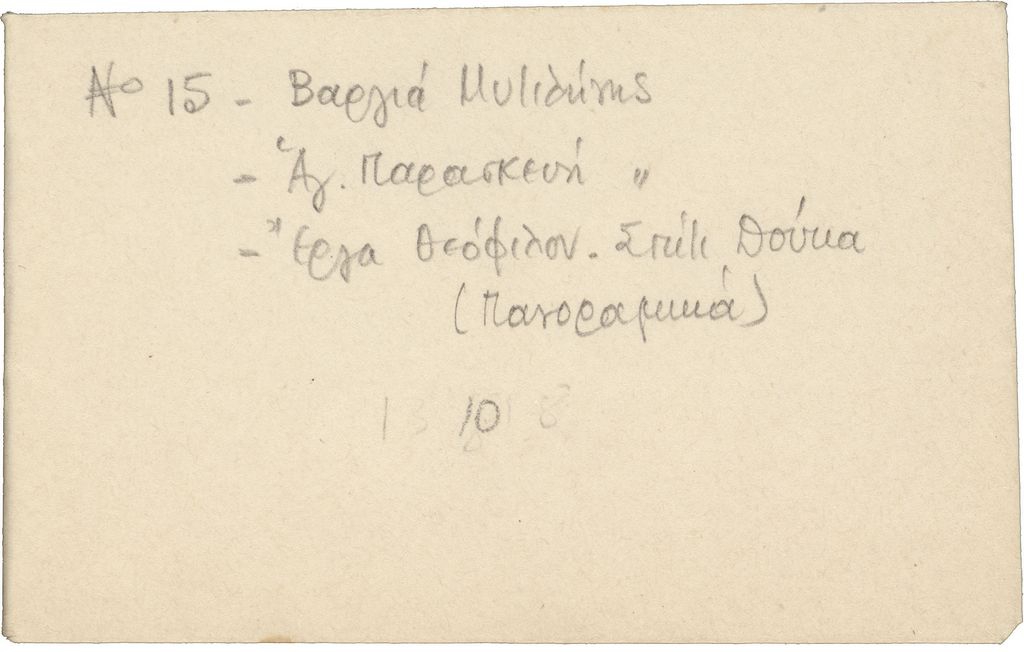 Nο 15 - Βαργιά Μυτιλήνης
- Ἁγ. Παρασκευή "
- Ἔργα Θεόφιλου. Σπίτι Δούκα
(Πανοραμικά)
10